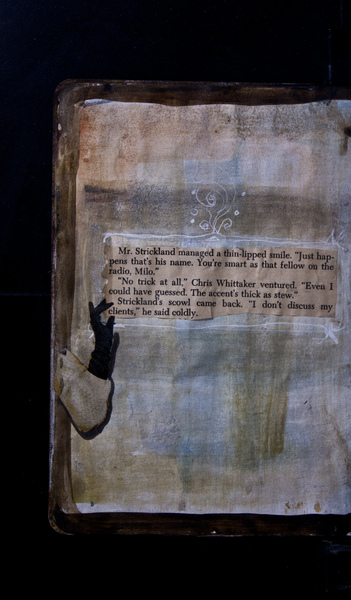 Mr. Strickland managed a thin-lipped smile. "Just hap-
pens that's his name. You're smart as that fellow on the
radio, Milo."
"No trick at all," Chris Whittaker ventured. "Even I
could have guessed. The accent's thick as stew."
Strickland's scowl came back. "I don't discuss my
clients," he said coldly.